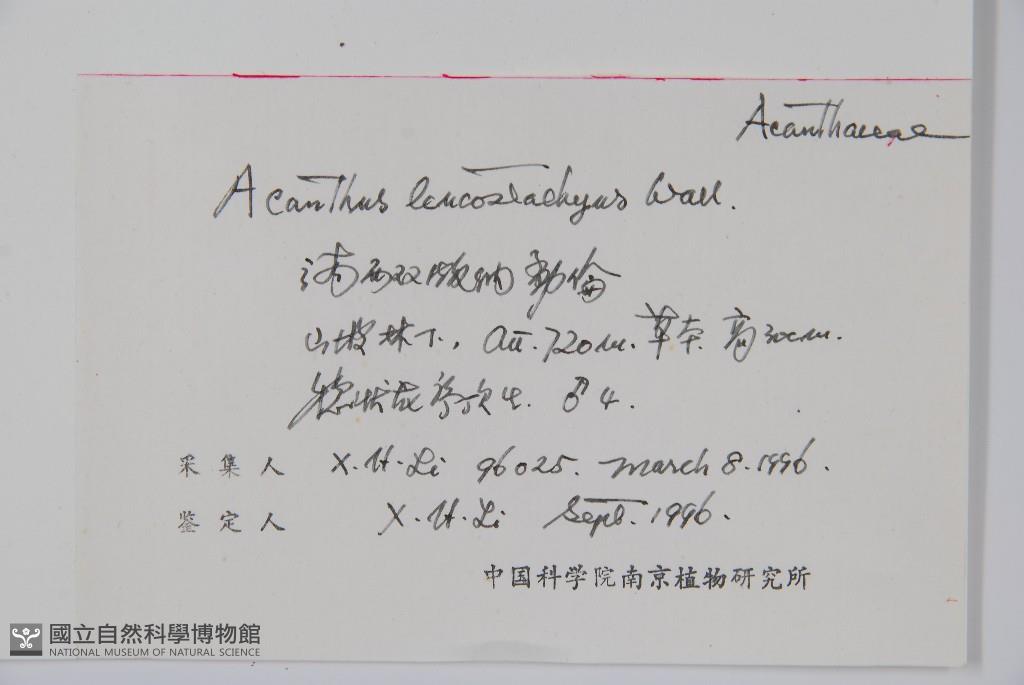 Acanthaceae
Acanthus leucostachyus Wall.
滇西双版纳勐倫
山坡林下, alt. 720m. 草本 高30cm.
穗状花序顶生. ♂ 4.
采集人 X. H. Li 96025. March 8. 1996.
鉴定人 X. H. Li Sept. 1996.
中国科学院南京植物研究所
國立自然科學博物館
NATIONAL MUSEUM OF NATURAL SCIENCE